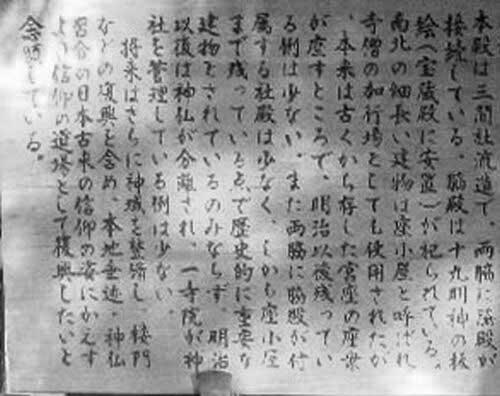 本殿は三間社流造で、両脇に脇殿が
接続している。脇殿は十九明神の板
絵(宝蔵殿に安置)が祀られている。
南北の細長い建物は座小屋と呼ばれ
寺僧の加行場としても使用されたが
、本来は古くから存した宮座の座衆
が座すところで、明治以後残ってい
る例は少ない。また両脇に脇殿が付
属する社殿は少なく、しかも座小屋
まで残っている点で歴史的に重要な
建物とされているのみならず、明治
以後は神仏が分離され、一寺院が神
社を管理している例は少ない。
将来はさらに神域を整備し、楼門
などの復興を含め、本地垂迹・神仏
習合の日本古来の信仰の姿にかえす
よう信仰の道場として復興したいと
念願している。